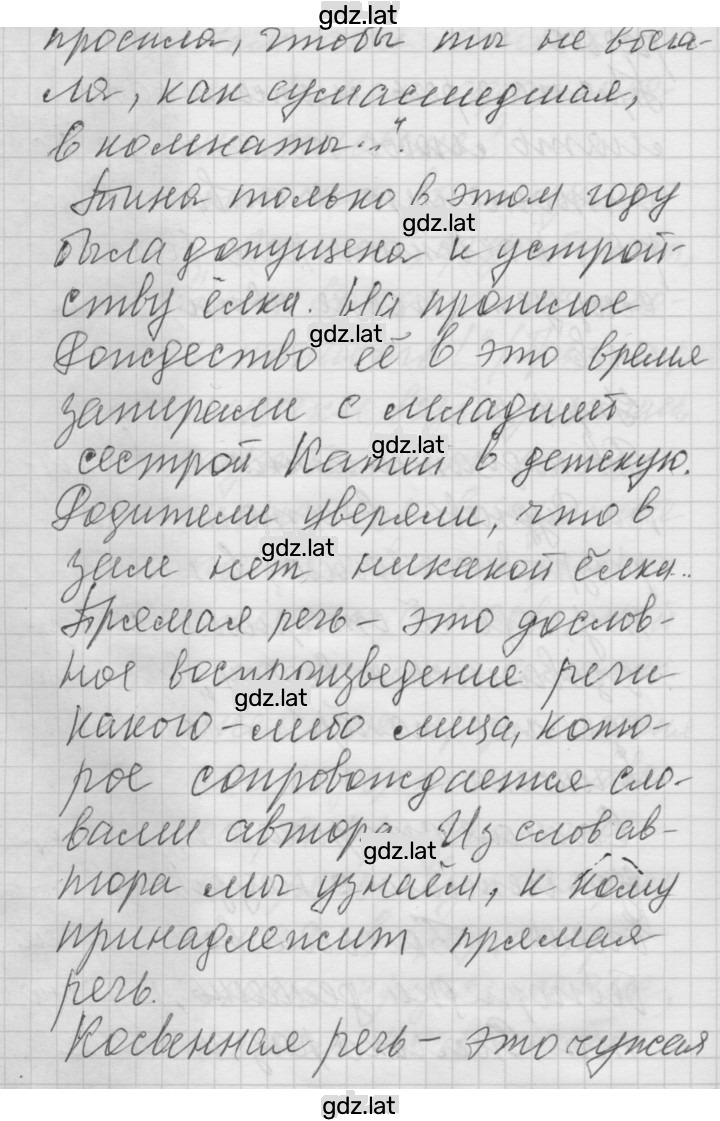 gdz.lat
просила, чтобы ты не вбега-
ла, как сумасшедшая,
в комнаты...".
Тина только в этом году
gdz.lat
была допущена к устрой-
ству ёлки. На прошлое
gdz.lat
Рождество её в это время
запирали с младшей
сестрой Катей в детскую.
gdz.lat
Родители уверяли, что в
gdz.lat
зале нет никакой ёлки..
Прямая речь – это дослов-
ное воспроизведение речи
gdz.lat
какого-либо лица, кото-
рое сопровождается сло-
вами автора. Из слов ав-
gdz.lat
тора мы узнаём, к кому
принадлежит прямая
речь.
Косвенная речь – это чужая
gdz.lat